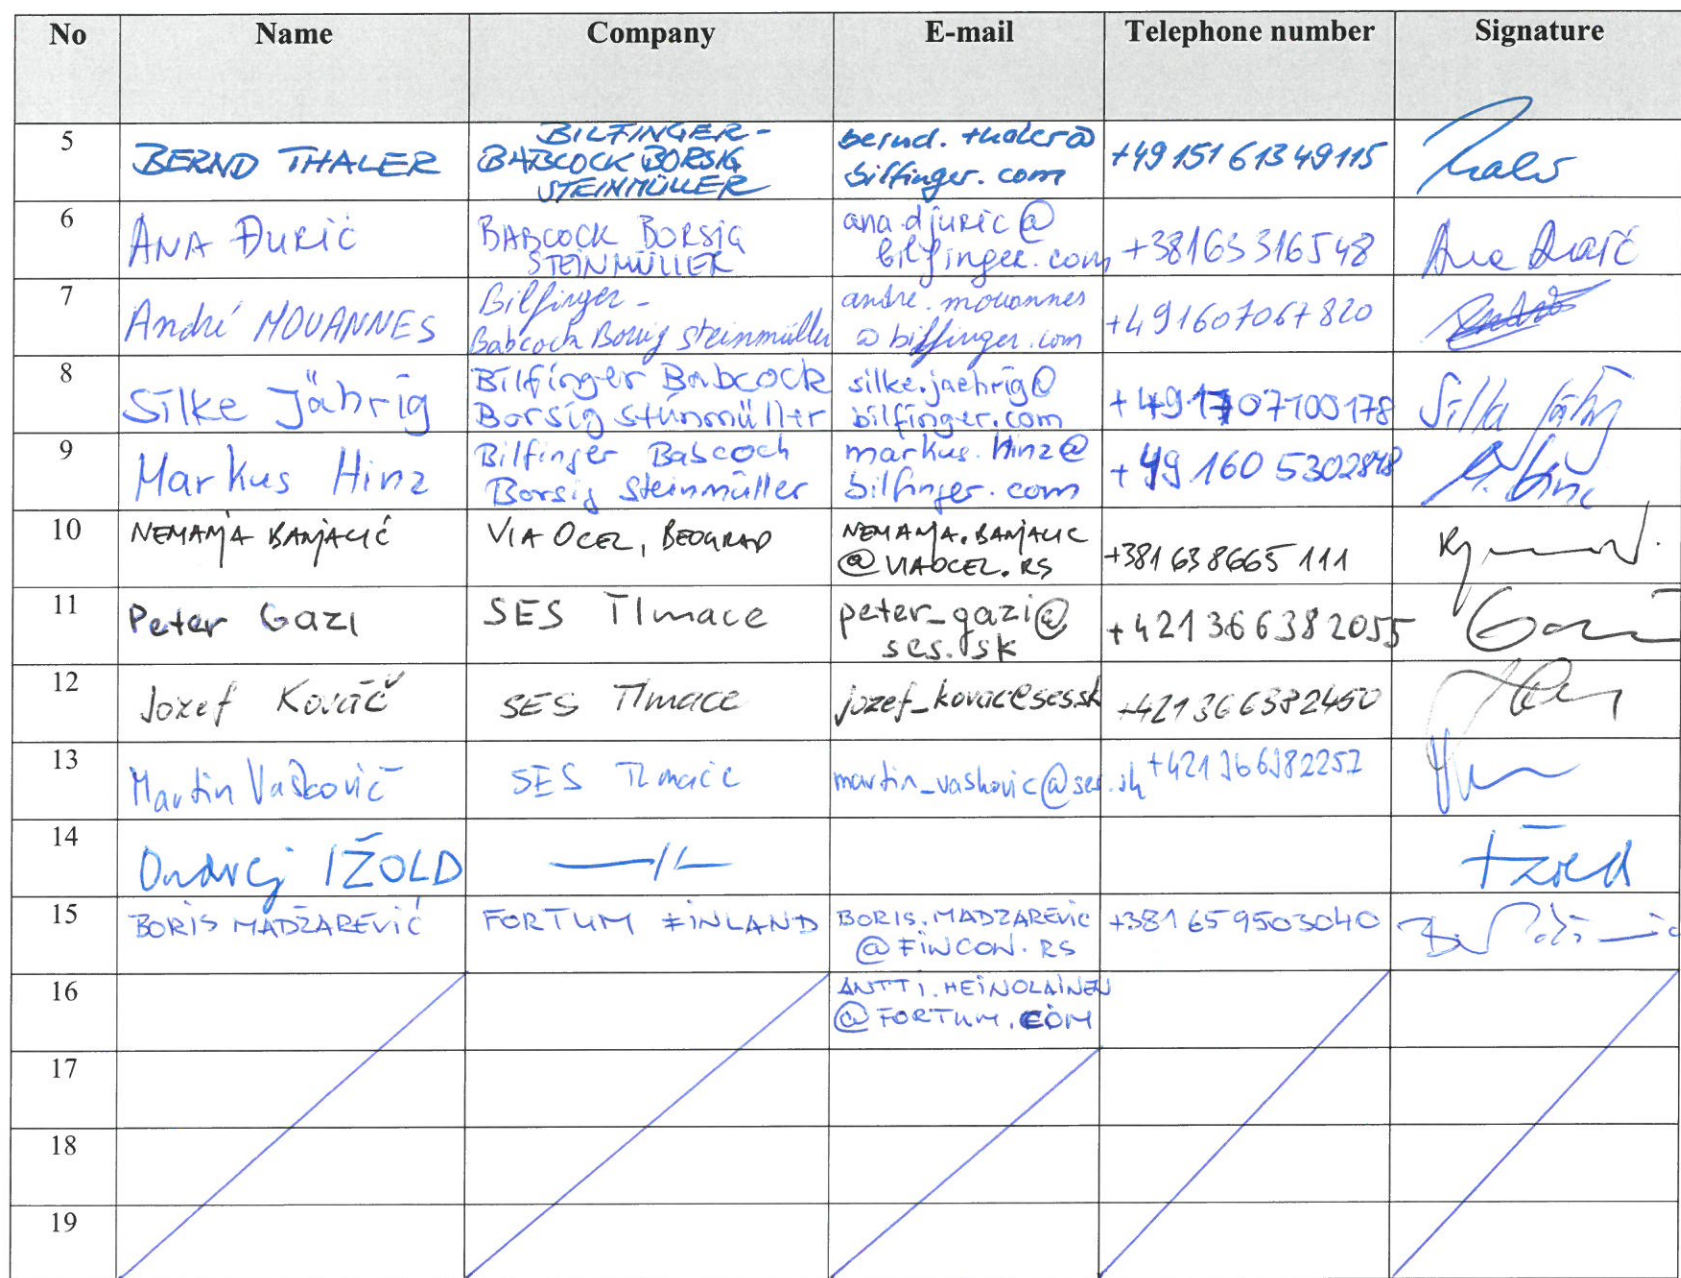 No Name Company E-mail Telephone number Signature
5 BERND THALER BILFINGER - BABCOCK BORSIG STEINMÜLLER bernd.thaler@ bilfinger.com +49 151 61349115
6 ANA ĐURIĆ BABCOCK BORSIG STEINMÜLLER ana.djuric@ bilfinger.com +38163316548 Ana Đurić
7 André MOUANNES Bilfinger - Babcock Borsig Steinmüller andre.mouannes @bilfinger.com +491607067820
8 Silke Jährig Bilfinger Babcock Borsig Steinmüller silke.jaehrig@ bilfinger.com +491707100178 Silke Jährig
9 Markus Hinz Bilfinger Babcock Borsig Steinmüller markus.hinz@ bilfinger.com +49 160 5302848 M. Hinz
10 NEMANJA BANJALIĆ VIA OCEL, BEOGRAD NEMANJA.BANJALIC @VIAOCEL.RS +381 63 8665 111
11 Peter Gazi SES Tlmace peter_gazi@ ses.sk +421366382055 Gazi
12 Jozef Kováč SES Tlmace jozef_kovac@ses.sk +421366382450
13 Martin Vaškovič SES Tlmače martin_vaskovic@ses.sk +421366382257
14 Ondrej IŽOLD —//— Ižold
15 BORIS MADŽAREVIĆ FORTUM FINLAND BORIS.MADZAREVIC @FINCON.RS +381659503040
16 ANTTI.HEINOLAINEN @FORTUM.COM
17
18
19